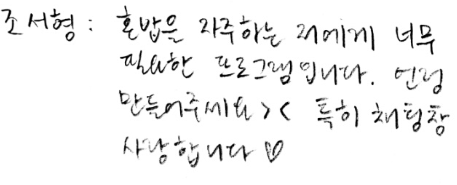 조서형 : 혼밥을 자주하는 저에게 너무
필요한 프로그램입니다. 언렁
만들어주세요>< 특히 채팅창
사랑합니다♡